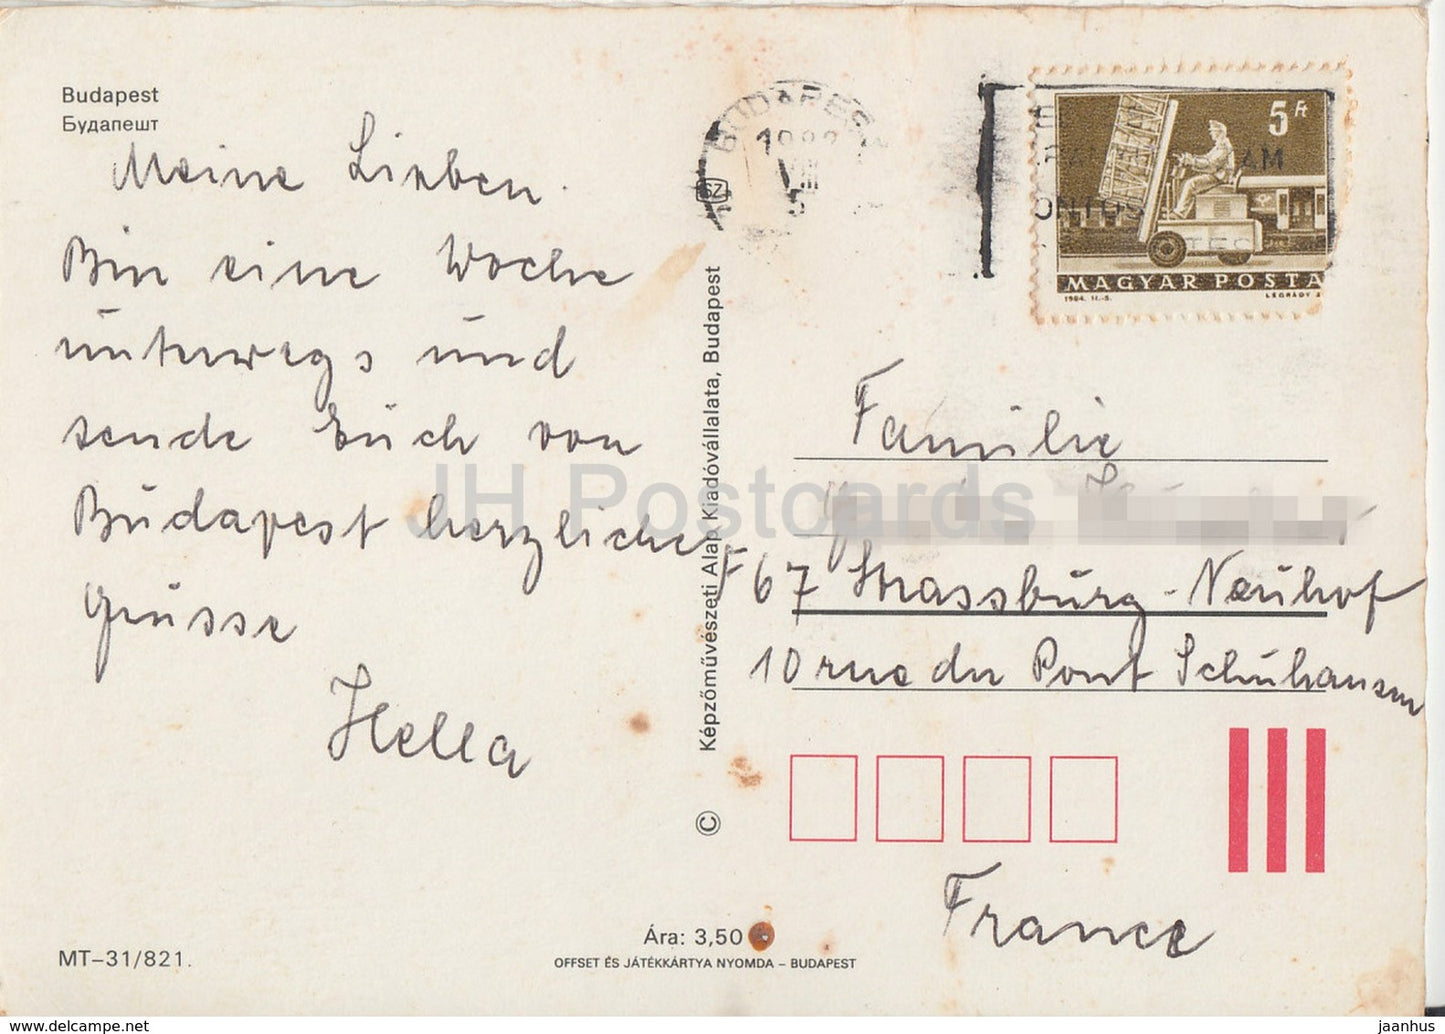 Budapest
Будапешт
Meine Lieben.
Bin eine Woche
unterwegs und
sende Euch von
Budapest herzliche
Grüsse
Hella
MT–31/821.
Képzőművészeti Alap Kiadóvállalata, Budapest
©
Ára: 3,50
OFFSET ÉS JÁTÉKKÁRTYA NYOMDA – BUDAPEST
BUDAPEST
VIII
SZ
5 Ft
AM
ONTOS
MAGYAR POSTA
1964. II.-5.
LÉGRÁDY S
JH Postcards
Familie
F 67 Strassburg - Neuhof
10 rue du Pont Schuhansen
France
www.delcampe.net
jaanhus